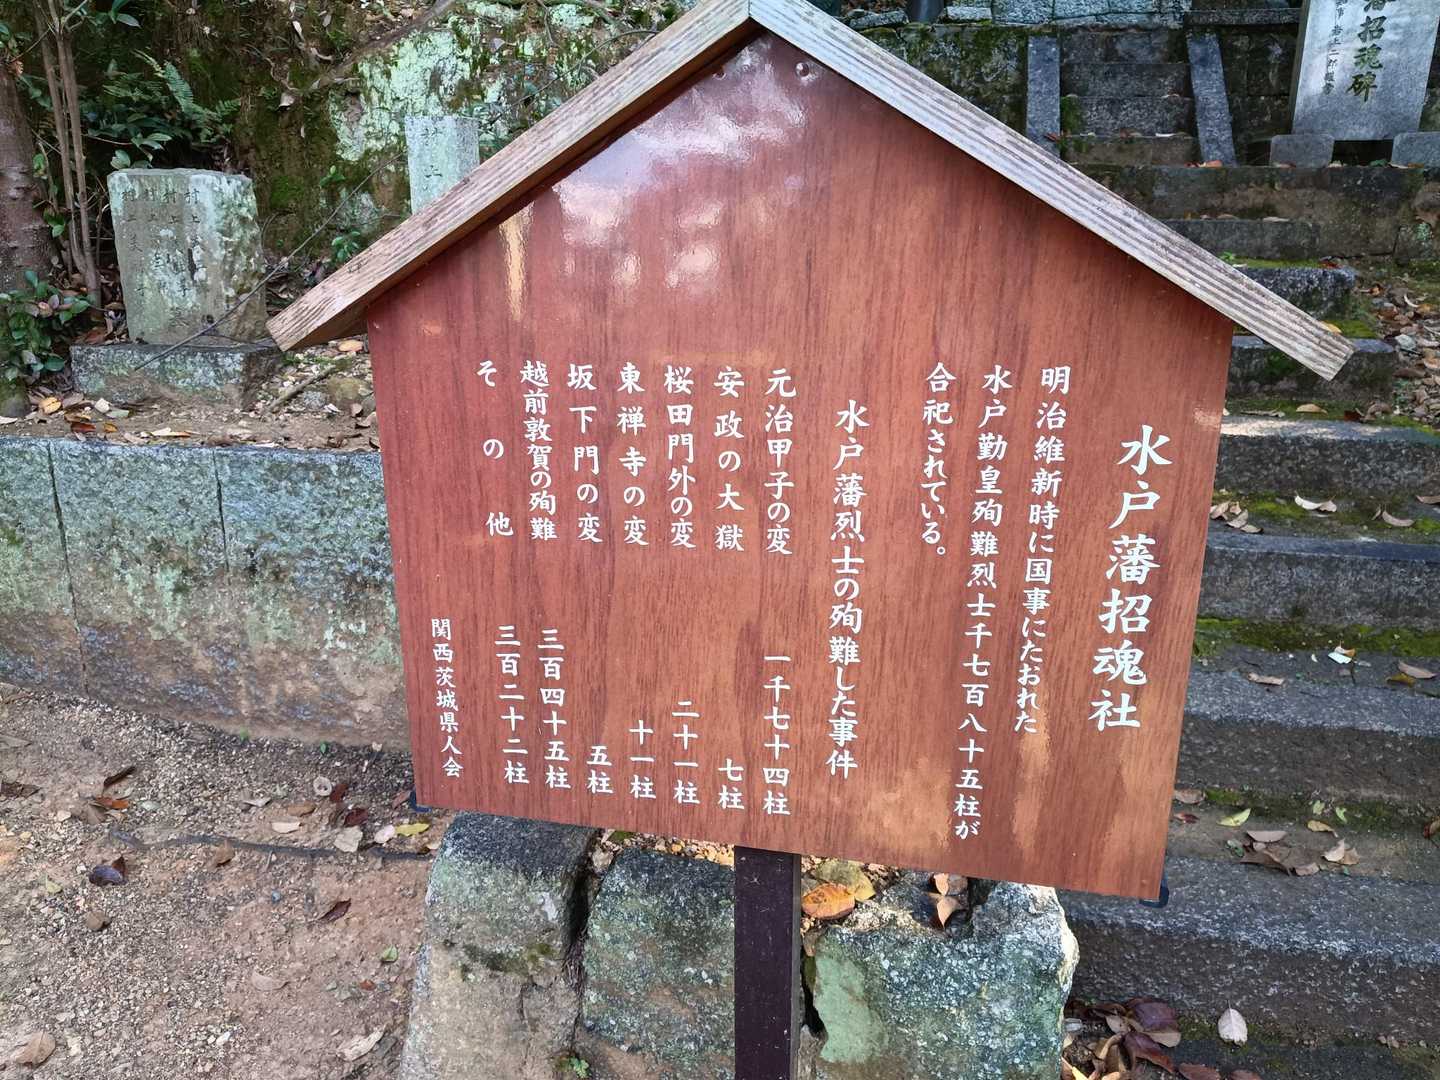 水戸藩招魂社
明治維新時に国事にたおれた
水戸勤皇殉難烈士千七百八十五柱が
合祀されている。
水戸藩烈士の殉難した事件
元治甲子の変 一千七十四柱
安政の大獄 七柱
桜田門外の変 二十一柱
東禅寺の変 十一柱
坂下門の変 五柱
越前敦賀の殉難 三百四十五柱
その他 三百二十二柱
関西茨城県人会
招魂碑
村上